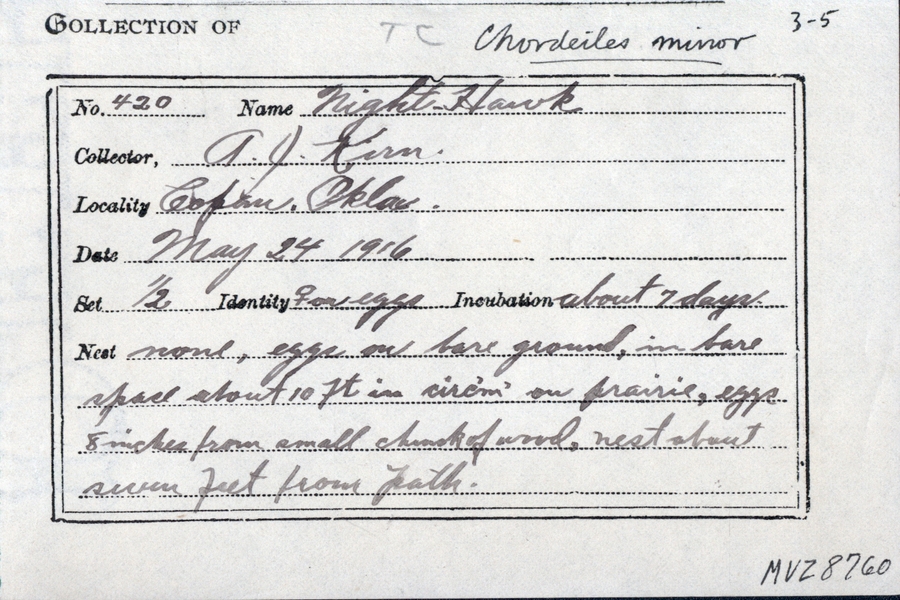 COLLECTION OF TC Chordeiles minor 3-5
No. 420 Name Night-Hawk
Collector, A. J. Kirn.
Locality Copan. Okla.
Date May 24 1916
Set 1/2 Identity ♀ on eggs Incubation about 7 days.
Nest none, eggs on bare ground, in bare
space about 10 ft in circm on prairie, eggs
8 inches from small chunk of wood, nest about
seven feet from path.
MVZ 8760